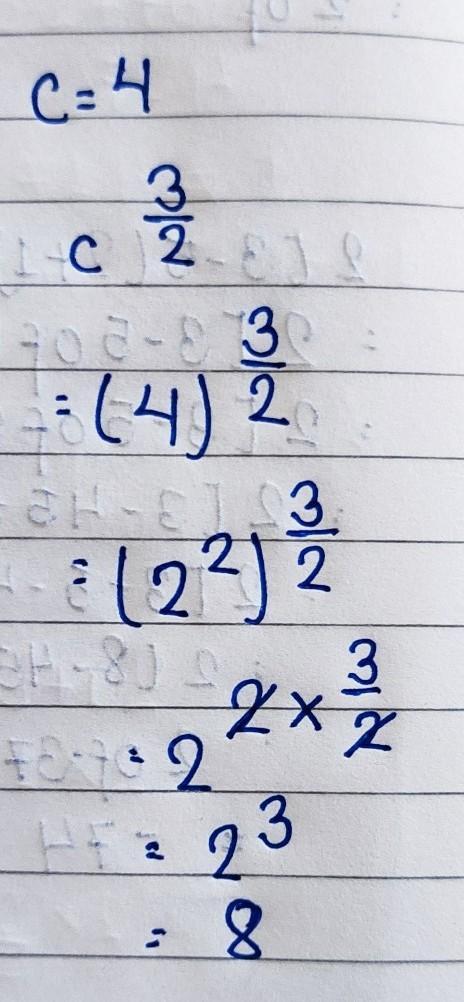 c = 4
c^(3/2)
= (4)^(3/2)
= (2^2)^(3/2)
= 2^(2×3/2)
= 2^3
= 8